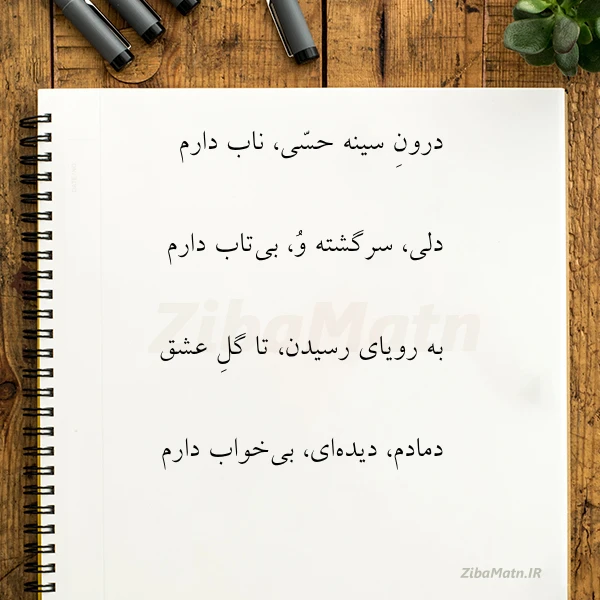 درونِ سینه حسّی، ناب دارم
دلی، سرگشته وُ، بی‌تاب دارم
ZibaMatn
به رویای رسیدن، تا گلِ عشق
دمادم، دیده‌ای، بی‌خواب دارم
ZibaMatn.IR